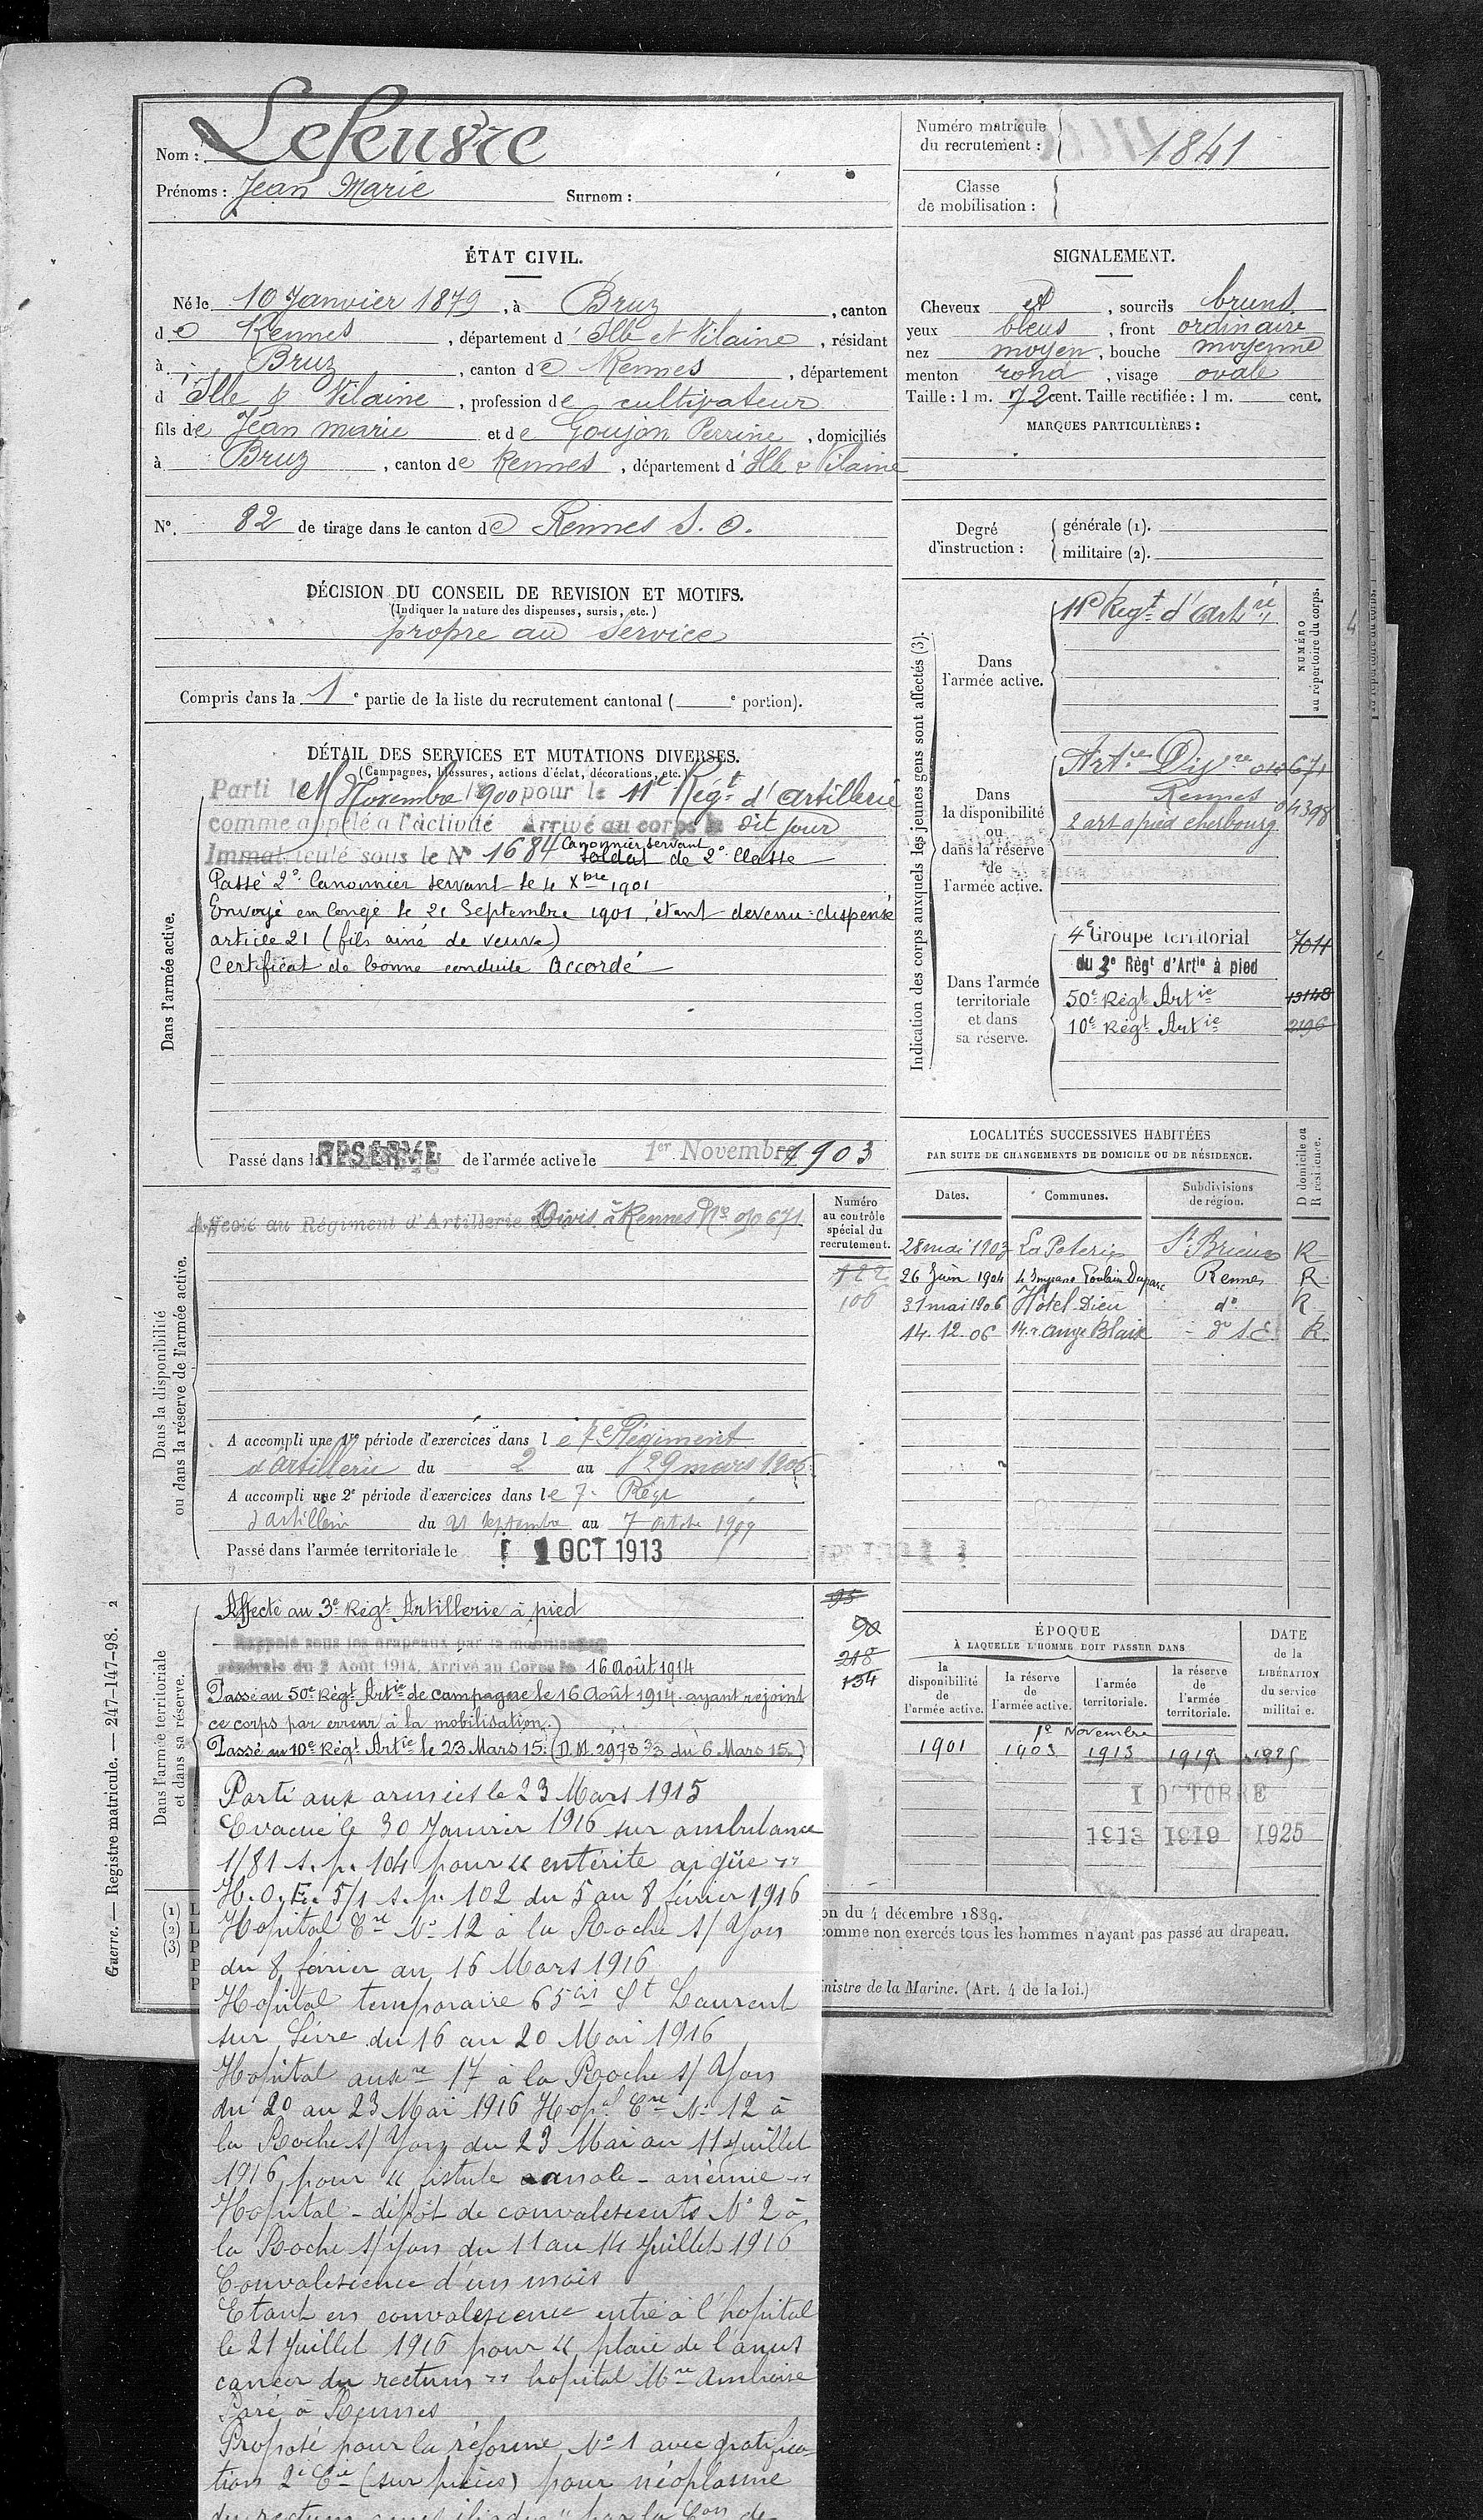 Nom : Lefeuvre
Prénoms : Jean Marie Surnom :
Numéro matricule
du recrutement : 1841
Classe
de mobilisation :
ÉTAT CIVIL.
Né le 10 Janvier 1879, à Bruz, canton
de Rennes, département d'Ille et Vilaine, résidant
à Bruz, canton de Rennes, département
d'Ille & Vilaine, profession de cultivateur
fils de Jean marie et de Goujon Perrine, domiciliés
à Bruz, canton de Rennes, département d'Ille & Vilaine
N° 82 de tirage dans le canton de Rennes S. O.
DÉCISION DU CONSEIL DE REVISION ET MOTIFS.
(Indiquer la nature des dispenses, sursis, etc.)
propre au service
Compris dans la 1e partie de la liste du recrutement cantonal ( e portion).
SIGNALEMENT.
Cheveux et, sourcils bruns
yeux bleus, front ordinaire
nez moyen, bouche moyenne
menton rond, visage ovale
Taille : 1 m. 72 cent. Taille rectifiée : 1 m. cent.
MARQUES PARTICULIÈRES :
Degré
d'instruction :
générale (1).
militaire (2).
DÉTAIL DES SERVICES ET MUTATIONS DIVERSES.
(Campagnes, blessures, actions d'éclat, décorations, etc.)
Dans l'armée active.
Parti le Novembre 1900 pour le 11e Régt d'artillerie
comme appelé à l'activité Arrivé au corps le dit jour
Immatriculé sous le N° 1684 Canonnier servant
soldat de 2e Classe
Passé 2e Canonnier servant le 4 Xbre 1901
Envoyé en Congé le 21 Septembre 1901, étant devenu dispensé
article 21 (fils ainé de veuve)
Certificat de bonne conduite Accordé
Passé dans la RÉSERVE de l'armée active le 1er Novembre 1903
Indication des corps auxquels les jeunes gens sont affectés (3).
NUMÉRO
au répertoire du corps.
Dans
l'armée active.
11e Régt d'Artrie
Dans
la disponibilité
ou
dans la réserve
de
l'armée active.
Artie Divre 010671
Rennes
2 art à pied Cherbourg 04398
Dans l'armée
territoriale
et dans
sa réserve.
4e Groupe territorial 7011
du 3e Règt d'Artie à pied
50e Régt Artie 13148
10e Régt Artie 2196
LOCALITÉS SUCCESSIVES HABITÉES
PAR SUITE DE CHANGEMENTS DE DOMICILE OU DE RÉSIDENCE.
Dates. Communes. Subdivisions
de région. D domicile ou
R résidence.
28 mai 1903 La Poterie St Brieuc R
26 Juin 1904 4 Impasse Toulain Duparc Rennes R
31 mai 1906 Hôtel Dieu do R
14.12.06 14 r. Ange Blaise do S.E. R
Dans la disponibilité
ou dans la réserve de l'armée active.
Numéro
au contrôle
spécial du
recrutement.
Affecté au Régiment d'Artillerie Divis. à Rennes No 010671
122
106
A accompli une 1re période d'exercices dans le 7e Régiment
d'Artillerie du 2 au 29 mars 1906
A accompli une 2e période d'exercices dans le 7e Régt
d'artillerie du 21 septembre au 7 octobre 1909
Passé dans l'armée territoriale le 1 OCT 1913
Dans l'armée territoriale
et dans sa réserve.
Affecté au 3e Régt Artillerie à pied
95
90
218
134
Rappelé sous les drapeaux par la mobilisation
générale du 2 Août 1914. Arrivé au Corps le 16 Août 1914
Passé au 50e Régt Artie de campagne le 16 Août 1914 ayant rejoint
ce corps par erreur à la mobilisation.)
Passé au 10e Régt Artie le 23 Mars 15. (D.M. 2978 3/3 du 6 Mars 15.)
ÉPOQUE
À LAQUELLE L'HOMME DOIT PASSER DANS
la
disponibilité
de
l'armée active.
la réserve
de
l'armée active.
l'armée
territoriale.
la réserve
de
l'armée
territoriale.
DATE
de la
LIBÉRATION
du service
militaire.
1er Novembre
1901 1903 1913 1919 1925
1 OCTOBRE
1913 1919 1925
Parti aux armées le 23 Mars 1915
Evacué le 30 Janvier 1916 sur ambulance
1/81 s. p. 104 pour « entérite aigüe »
H. O. E. 5/1 s. p. 102 du 5 au 8 février 1916
Hopital Cre No 12 à la Roche s/ Yon
du 8 février au 16 Mars 1916
Hopital temporaire 65bis St Laurent
sur Sèvre du 16 au 20 Mai 1916
Hopital auxre 17 à la Roche s/ Yon
du 20 au 23 Mai 1916 Hopal Cre No 12 à
la Roche s/ Yon du 23 Mai au 11 Juillet
1916 pour « fistule anale - anémie »
Hopital - dépôt de convalescents No 2 à
la Roche s/ Yon du 11 au 14 Juillet 1916
Convalescence d'un mois
Etant en convalescence entré à l'hopital
le 21 Juillet 1916 pour « plaie de l'anus
cancer du rectum » hopital Mre Ambroise
Paré à Rennes
Proposé pour la réforme No 1 avec gratifica
tion 2e Cie (sur pièces) pour néoplasme
du rectum par la Con de
on du 4 décembre 1889.
comme non exercés tous les hommes n'ayant pas passé au drapeau.
nistre de la Marine. (Art. 4 de la loi.)
(1) L
(2) L
(3) P
P
P
Guerre. — Registre matricule. — 247-147-98. 2